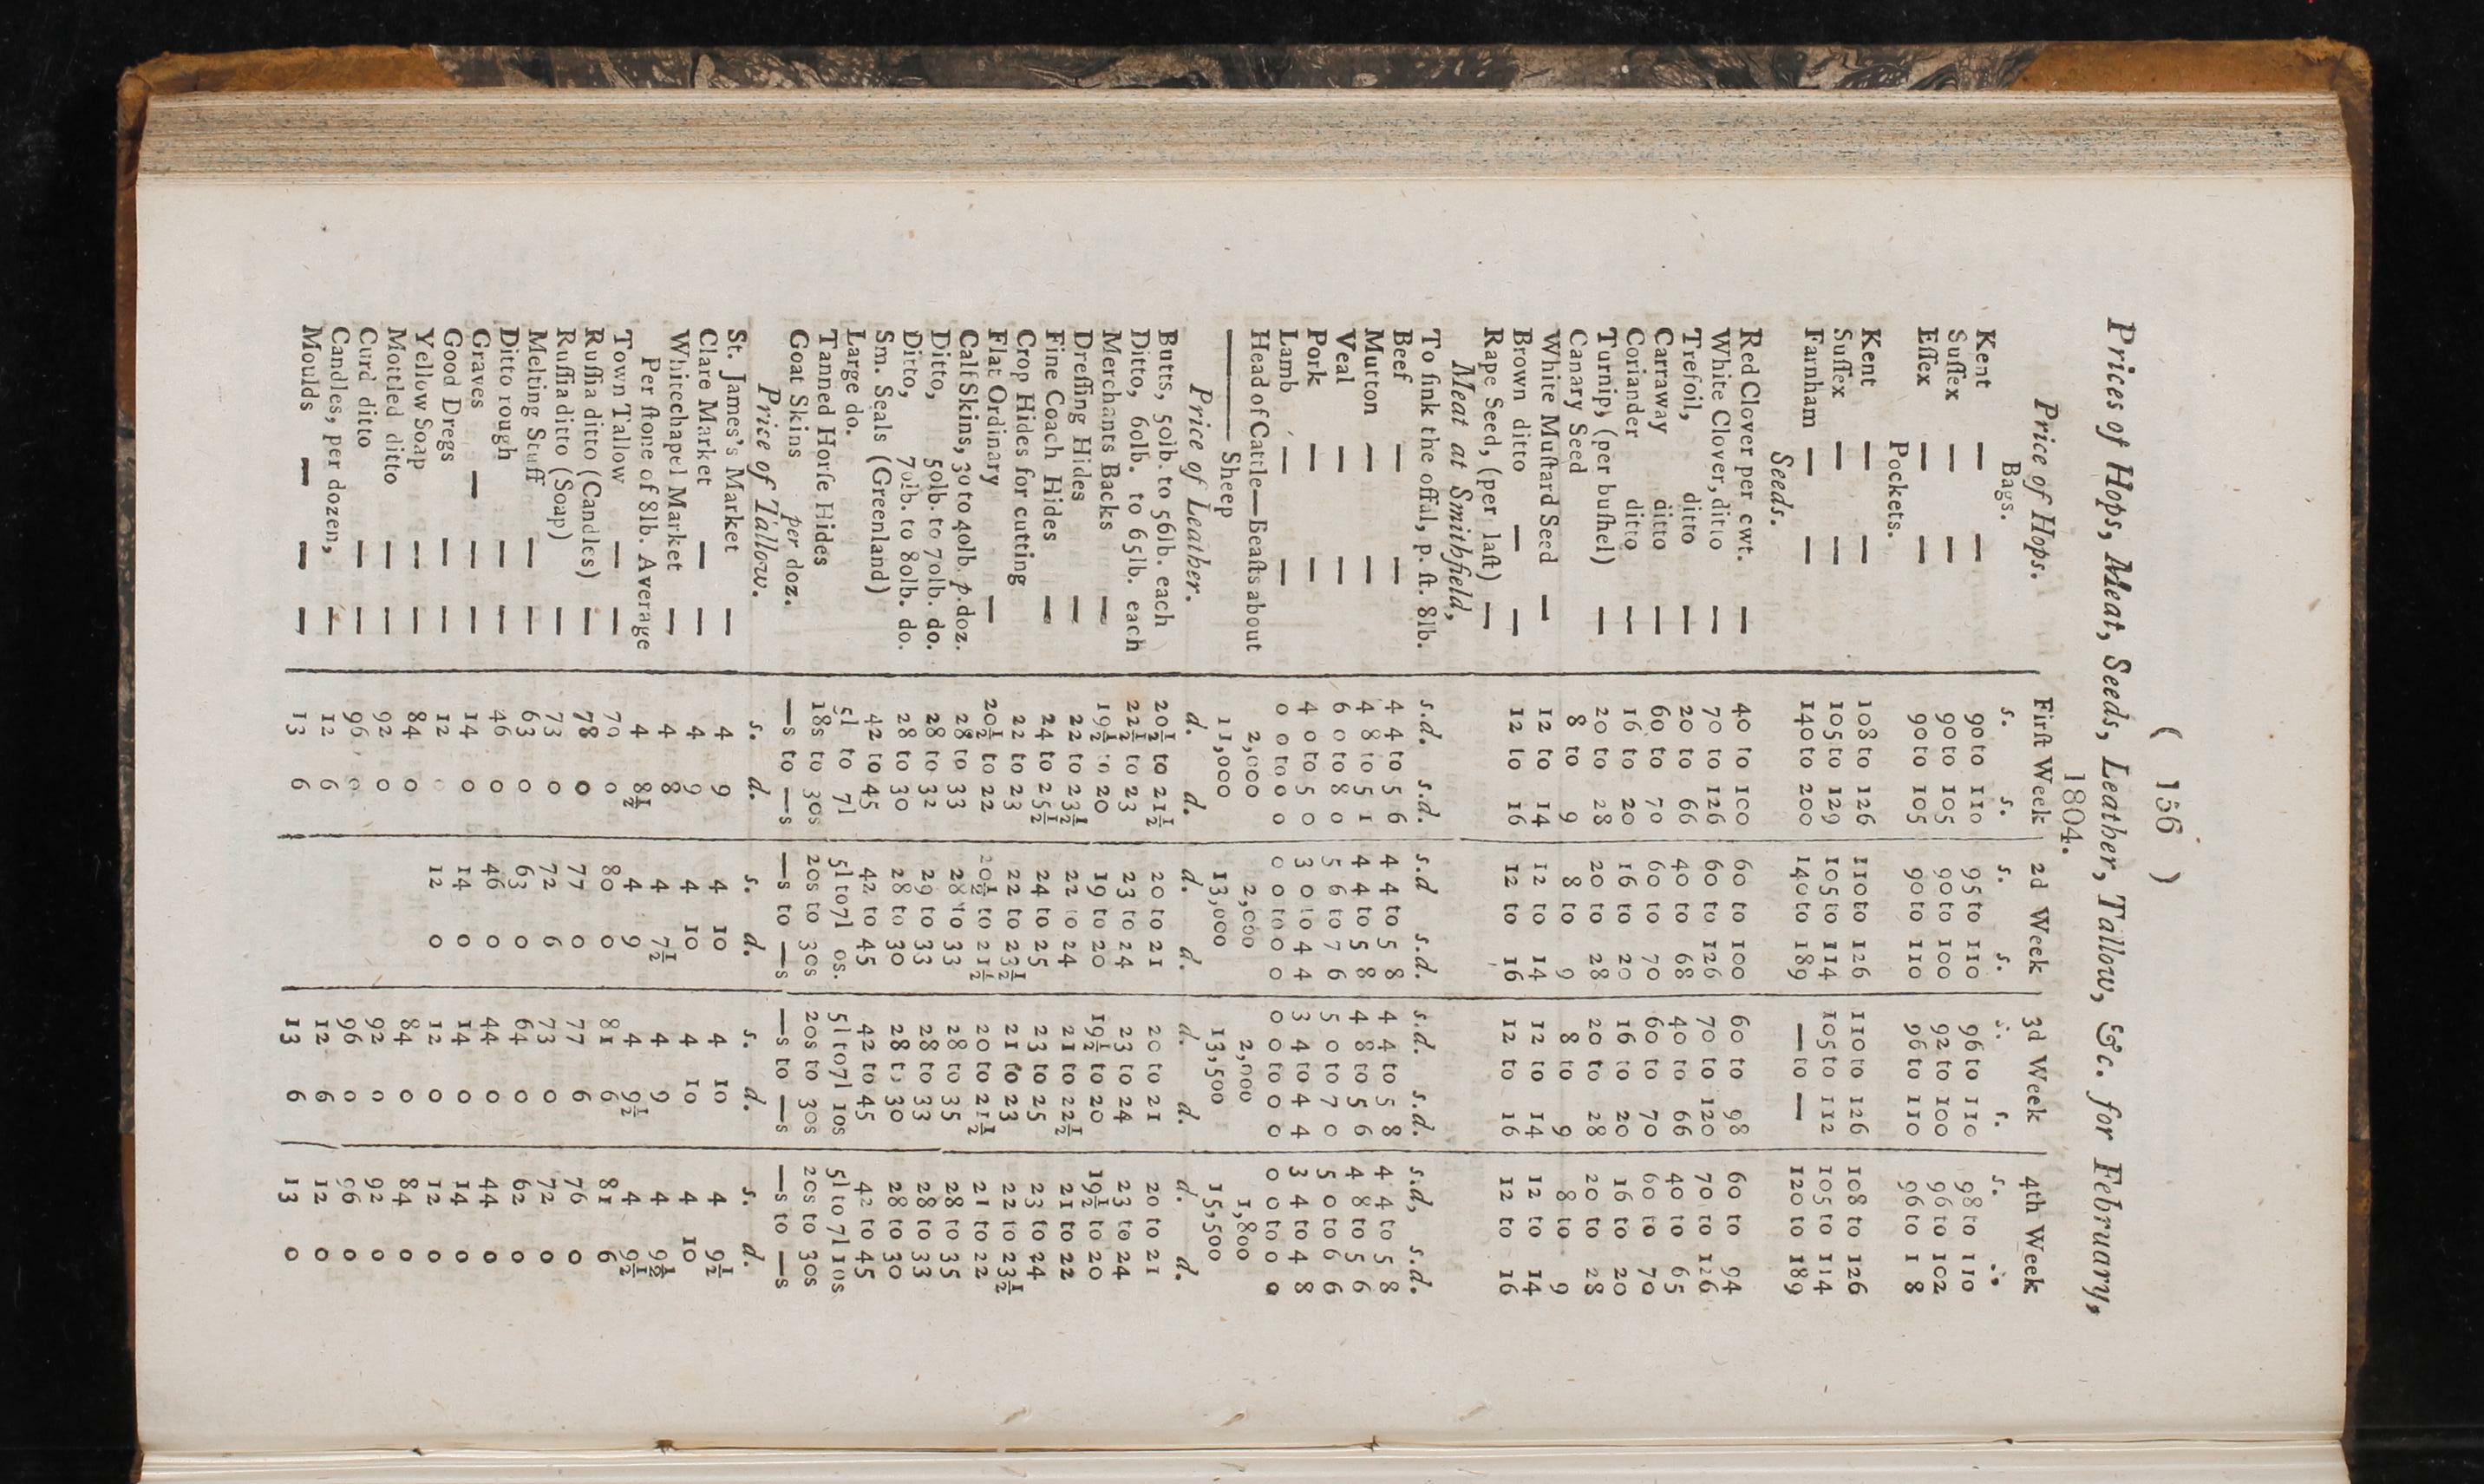 ( 156 )
Prices of Hops, Meat, Seeds, Leather, Tallow, &c. for February,
1804.
Price of Hops. First Week 2d Week 3d Week 4th Week
Bags. s. s. s. s. s. s. s. s.
Kent — — 90 to 110 95 to 110 96 to 110 98 to 110
Suſſex — — 90 to 105 90 to 100 92 to 100 96 to 102
Eſſex — — 90 to 105 90 to 110 96 to 110 96 to 1 8
Pockets.
Kent — — 108 to 126 110 to 126 110 to 126 108 to 126
Suſſex — — 105 to 129 105 to 114 105 to 112 105 to 114
Farnham — — 140 to 200 140 to 189 — to — 120 to 189
Seeds.
Red Clover per cwt. — 40 to 100 60 to 100 60 to 98 60 to 94
White Clover, ditto — 70 to 126 60 to 126 70 to 120 70 to 126
Trefoil, ditto — 20 to 66 40 to 68 40 to 66 40 to 65
Carraway ditto — 60 to 70 60 to 70 60 to 70 60 to 70
Coriander ditto — 16 to 20 16 to 20 16 to 20 16 to 20
Turnip, (per buſhel) — 20 to 28 20 to 28 20 to 28 20 to 28
Canary Seed 8 to 9 8 to 9 8 to 9 8 to 9
White Muſtard Seed — 12 to 14 12 to 14 12 to 14 12 to 14
Brown ditto — — 12 to 16 12 to 16 12 to 16 12 to 16
Rape Seed, (per laſt) —
Meat at Smithfield,
To ſink the offal, p. ſt. 8lb. s.d. s.d. s.d s.d. s.d. s.d. s.d, s.d.
Beef — — 4 4 to 5 6 4 4 to 5 8 4 4 to 5 8 4 4 to 5 8
Mutton — — 4 8 to 5 1 4 4 to 5 8 4 8 to 5 6 4 8 to 5 6
Veal — — 6 0 to 8 0 5 6 to 7 6 5 0 to 7 0 5 0 to 6 6
Pork — — 4 0 to 5 0 3 0 to 4 4 3 4 to 4 4 3 4 to 4 8
Lamb — — 0 0 to 0 0 0 0 to 0 0 0 0 to 0 0 0 0 to 0 0
Head of Cattle—Beaſts about 2,000 2,000 2,000 1,800
——— Sheep 11,000 13,000 13,500 15,500
Price of Leather. d. d. d. d. d. d. d. d.
Butts, 50lb. to 56lb. each 20½ to 21½ 20 to 21 20 to 21 20 to 21
Ditto, 60lb. to 65lb. each 22½ to 23 23 to 24 23 to 24 23 to 24
Merchants Backs — 19½ to 20 19 to 20 19½ to 20 19½ to 20
Dreſſing Hides — 22 to 23½ 22 to 24 21 to 22½ 21 to 22
Fine Coach Hides — 24 to 25½ 24 to 25 23 to 25 23 to 24
Crop Hides for cutting 22 to 23 22 to 23½ 21 to 23 22 to 23½
Flat Ordinary — 20½ to 22 20½ to 21½ 20 to 21½ 21 to 22
Calf Skins, 30 to 40lb. p.doz. 28 to 33 28 to 33 28 to 35 28 to 35
Ditto, 50lb. to 70lb. do. 28 to 32 29 to 33 28 to 33 28 to 33
Ditto, 70lb. to 80lb. do. 28 to 30 28 to 30 28 to 30 28 to 30
Sm. Seals (Greenland) 42 to 45 42 to 45 42 to 45 42 to 45
Large do. 5l to 7l 5l to 7l 0s. 5l to 7l 10s 5l to 7l 10s
Tanned Horſe Hides 18s to 30s 20s to 30s 20s to 30s 20s to 30s
Goat Skins per doz. —s to —s —s to —s —s to —s —s to —s
Price of Tallow. s. d. s. d. s. d. s. d.
St. James's Market — 4 9 4 10 4 10 4 9½
Clare Market — — 4 9 4 10 4 10 4 10
Whitechapel Market — 4 8 4 7½ 4 9 4 9½
Per ſtone of 8lb. Average 4 8½ 4 9 4 9½ 4 9½
Town Tallow — — 79 0 80 0 81 6 81 6
Ruſſia ditto (Candles) — 78 0 77 0 77 6 76 0
Ruſſia ditto (Soap) — 73 0 72 6 73 0 72 0
Melting Stuff — — 63 0 63 0 64 0 62 0
Ditto rough — — 46 0 46 0 44 0 44 0
Graves — — — 14 0 14 0 14 0 14 0
Good Dregs — — 12 0 12 0 12 0 12 0
Yellow Soap — — 84 0 84 0 84 0
Mottled ditto — — 92 0 92 0 92 0
Curd ditto — — 96 0 96 0 96 0
Candles, per dozen, — 12 6 12 6 12 0
Moulds — — — 13 6 13 6 13 0